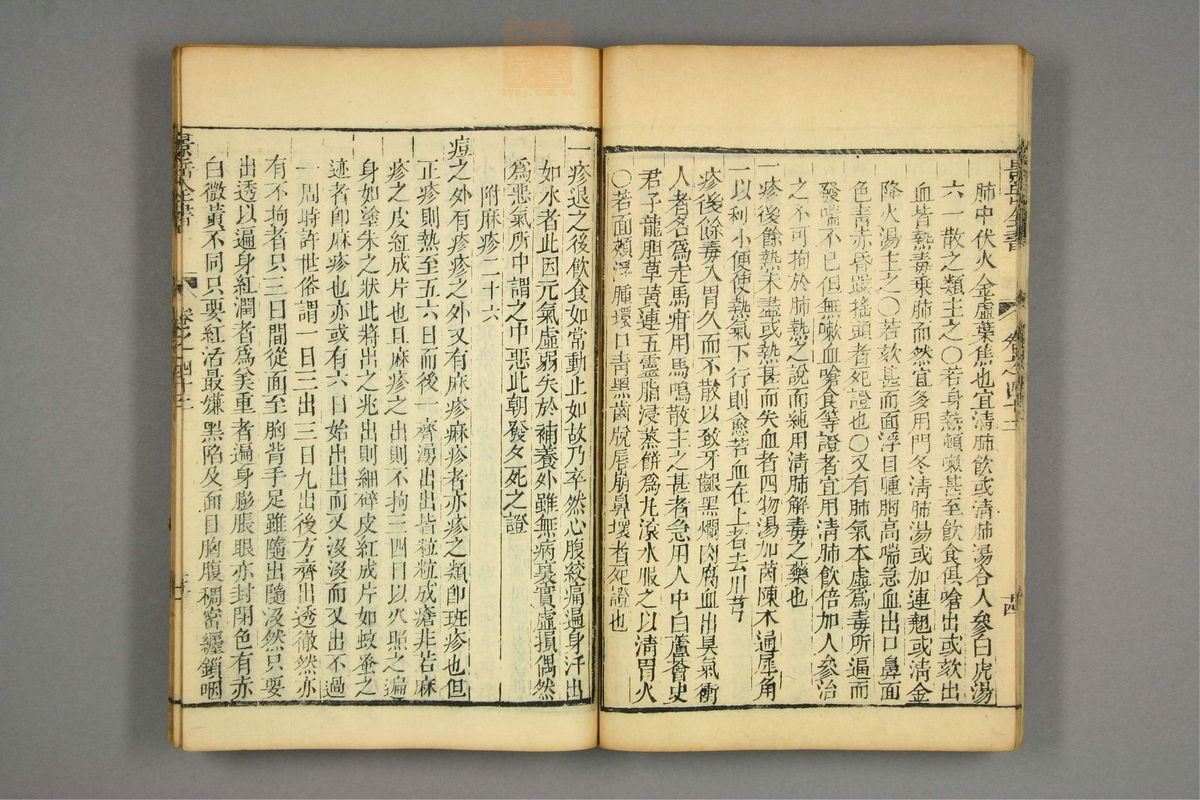 肺中伏火金虛葉焦也宜清肺飲或清肺湯合人參白虎湯
六一散之類主之○若身熱頓嗽甚至飲食俱嗆出或欬出
血皆熱毒乘肺而然宜多用門冬清肺湯或加連翹或清金
降火湯主之○若欬甚而面浮目腫胸高喘急血出口鼻面
色青赤昏躁搖頭者死證也○又有肺氣本虛爲毒所逼而
發喘不已但無嗽血嗆食等證者宜用清肺飲倍加人參治
之不可拘於肺熱之說而純用清肺解毒之藥也
一疹後餘熱未盡或熱甚而失血者四物湯加茵陳木通犀角
一以利小便使熱氣下行則愈若血在上者去川芎
疹後餘毒入胃久而不散以致牙齦黑爛肉腐血出臭氣衝
人者名爲走馬疳用馬鳴散主之甚者急用人中白蘆薈史
君子龍膽草黃連五靈脂浸蒸餅爲丸滾水服之以清胃火
○若面頰浮腫環口青黑齒脫唇崩鼻壞者死證也
景岳全書
卷之四十三
一疹退之後飲食如常動止如故乃卒然心腹絞痛遍身汗出
如水者此因元氣虛弱失於補養外雖無病裏實虛損偶然
爲惡氣所中謂之中惡此朝發夕死之證
附麻疹二十六
痘之外有疹疹之外又有麻疹麻疹者亦疹之類即斑疹也但
正疹則熱至五六日而後一齊湧出出皆粒粒成瘡非若麻
疹之皮紅成片也且麻疹之出則不拘三四日以火照之遍
身如塗朱之狀此將出之兆出則細碎皮紅成片如蚊蚤之
迹者即麻疹也亦或有六日始出出而又沒沒而又出不過
一周時許世俗謂一日三出三日九出後方齊出透徹然亦
有不拘者只三日間從面至胸背手足雖隨出隨沒然只要
出透以遍身紅潤者爲美重者遍身膨脹眼亦封閉色有赤
白微黃不同只要紅活最嫌黑陷及面目胸腹稠密纏鎖咽
景岳全書
卷之四十三